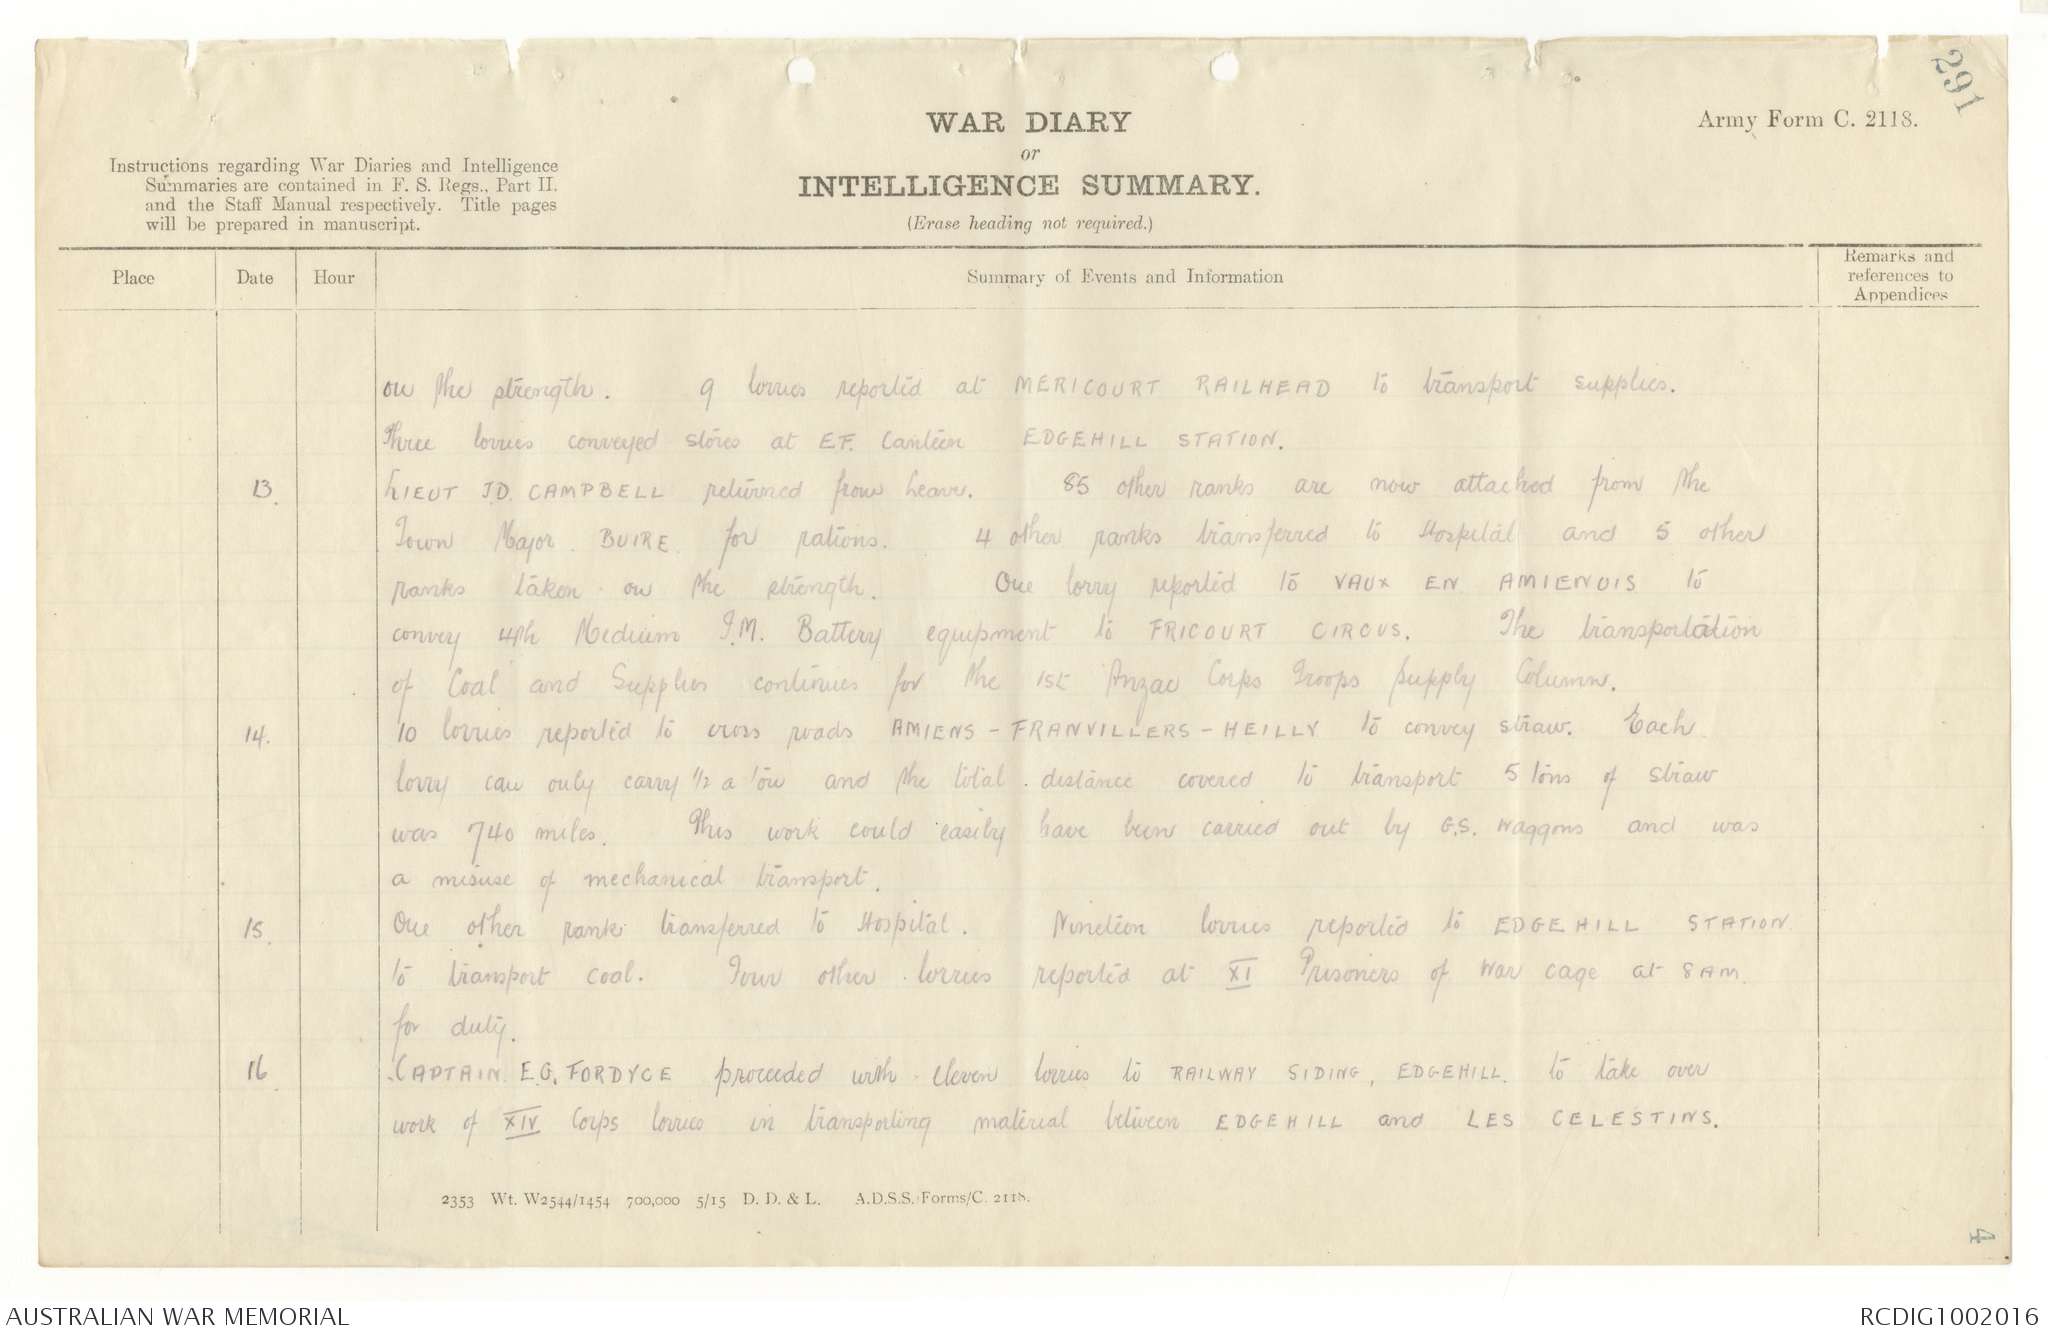 291
WAR DIARY
or
INTELLIGENCE SUMMARY.
(Erase heading not required.)
Army Form C. 2118.
Instructions regarding War Diaries and Intelligence
Summaries are contained in F. S. Regs., Part II.
and the Staff Manual respectively. Title pages
will be prepared in manuscript.
Place Date Hour Summary of Events and Information Remarks and
references to
Appendices
on the strength. 9 lorries reported at MERICOURT RAILHEAD to transport supplies.
Three lorries conveyed stores at E.F. Canteen EDGEHILL STATION.
13. LIEUT J.D. CAMPBELL returned from leave. 85 other ranks are now attached from the
Town Major BUIRE for rations. 4 other ranks transferred to Hospital and 5 other
ranks taken on the strength. One lorry reported to VAUX EN AMIENOIS to
convey 4th Medium T.M. Battery equipment to FRICOURT CIRCUS. The transportation
of Coal and Supplies continues for the 1st Anzac Corps Troops Supply Column.
14. 10 lorries reported to cross roads AMIENS - FRANVILLERS - HEILLY to convey straw. Each
lorry can only carry 1/2 a ton and the total distance covered to transport 5 tons of straw
was 740 miles. This work could easily have been carried out by G.S. Waggons and was
a misuse of mechanical transport.
15. One other rank transferred to Hospital. Nineteen lorries reported to EDGEHILL STATION
to transport coal. Four other lorries reported at XI Prisoners of War cage at 8AM.
for duty.
16 CAPTAIN E.G. FORDYCE proceeded with eleven lorries to RAILWAY SIDING, EDGEHILL. to take over
work of XIV Corps lorries in transporting material between EDGEHILL and LES CELESTINS.
2353 Wt. W2544/1454 700,000 5/15 D. D. & L. A.D.S.S./Forms/C. 2118.
4
AUSTRALIAN WAR MEMORIAL
RCDIG1002016